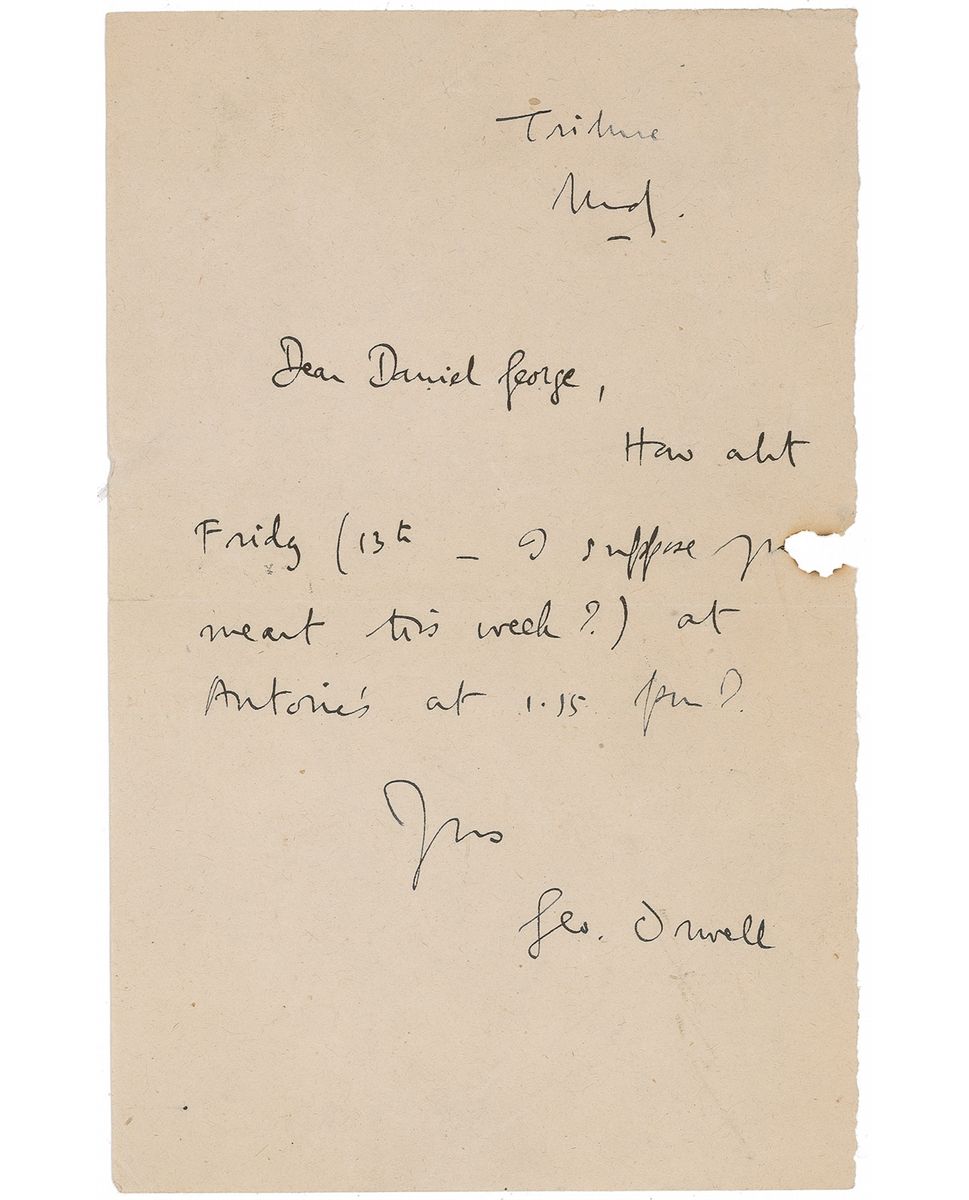 Tribune
Dear Daniel George,
How abt
Friday (13th – I suppose
meant this week?) at
Antoine's at 1.15 pm?
Yrs
Geo. Orwell